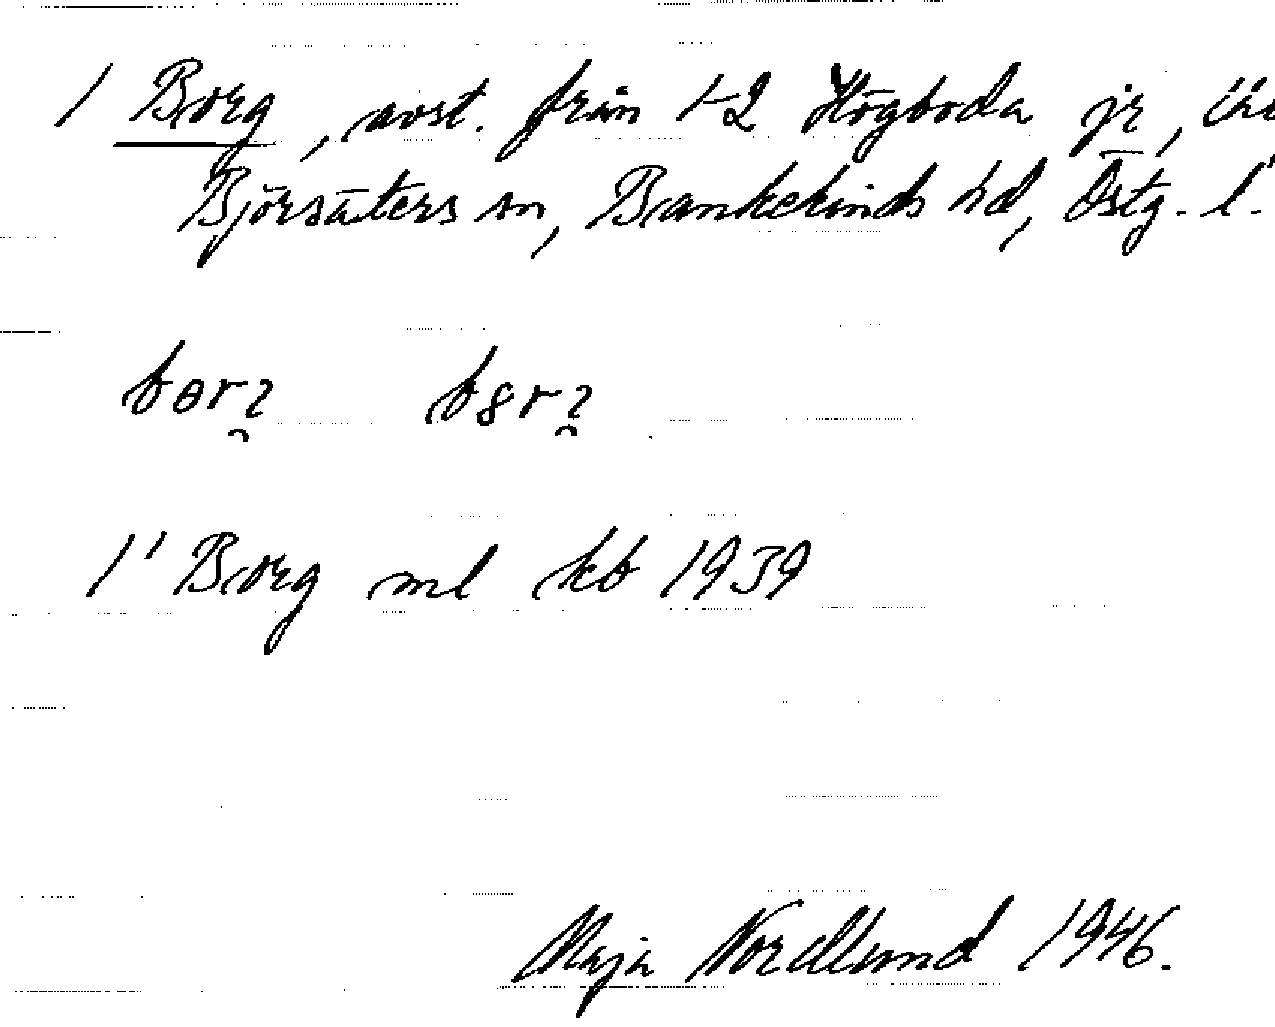 1 Borg, avst. från 1-2 Högboda jr,
Björsäters sn, Bankekinds hd, Östg. l.
1' Borg ml kb 1939
Maja Nordlund 1946.